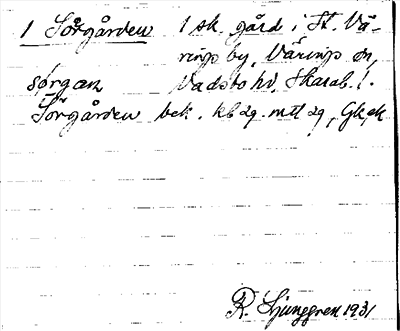 1 Sörgården 1 sk. gård i St. Vä-
rings by, Värings sn,
sørgan Vadsbo hd, Skarab. l.
Sörgården bek. kb 29. mtl 29, Gk, ek
R. Ljunggren 1931